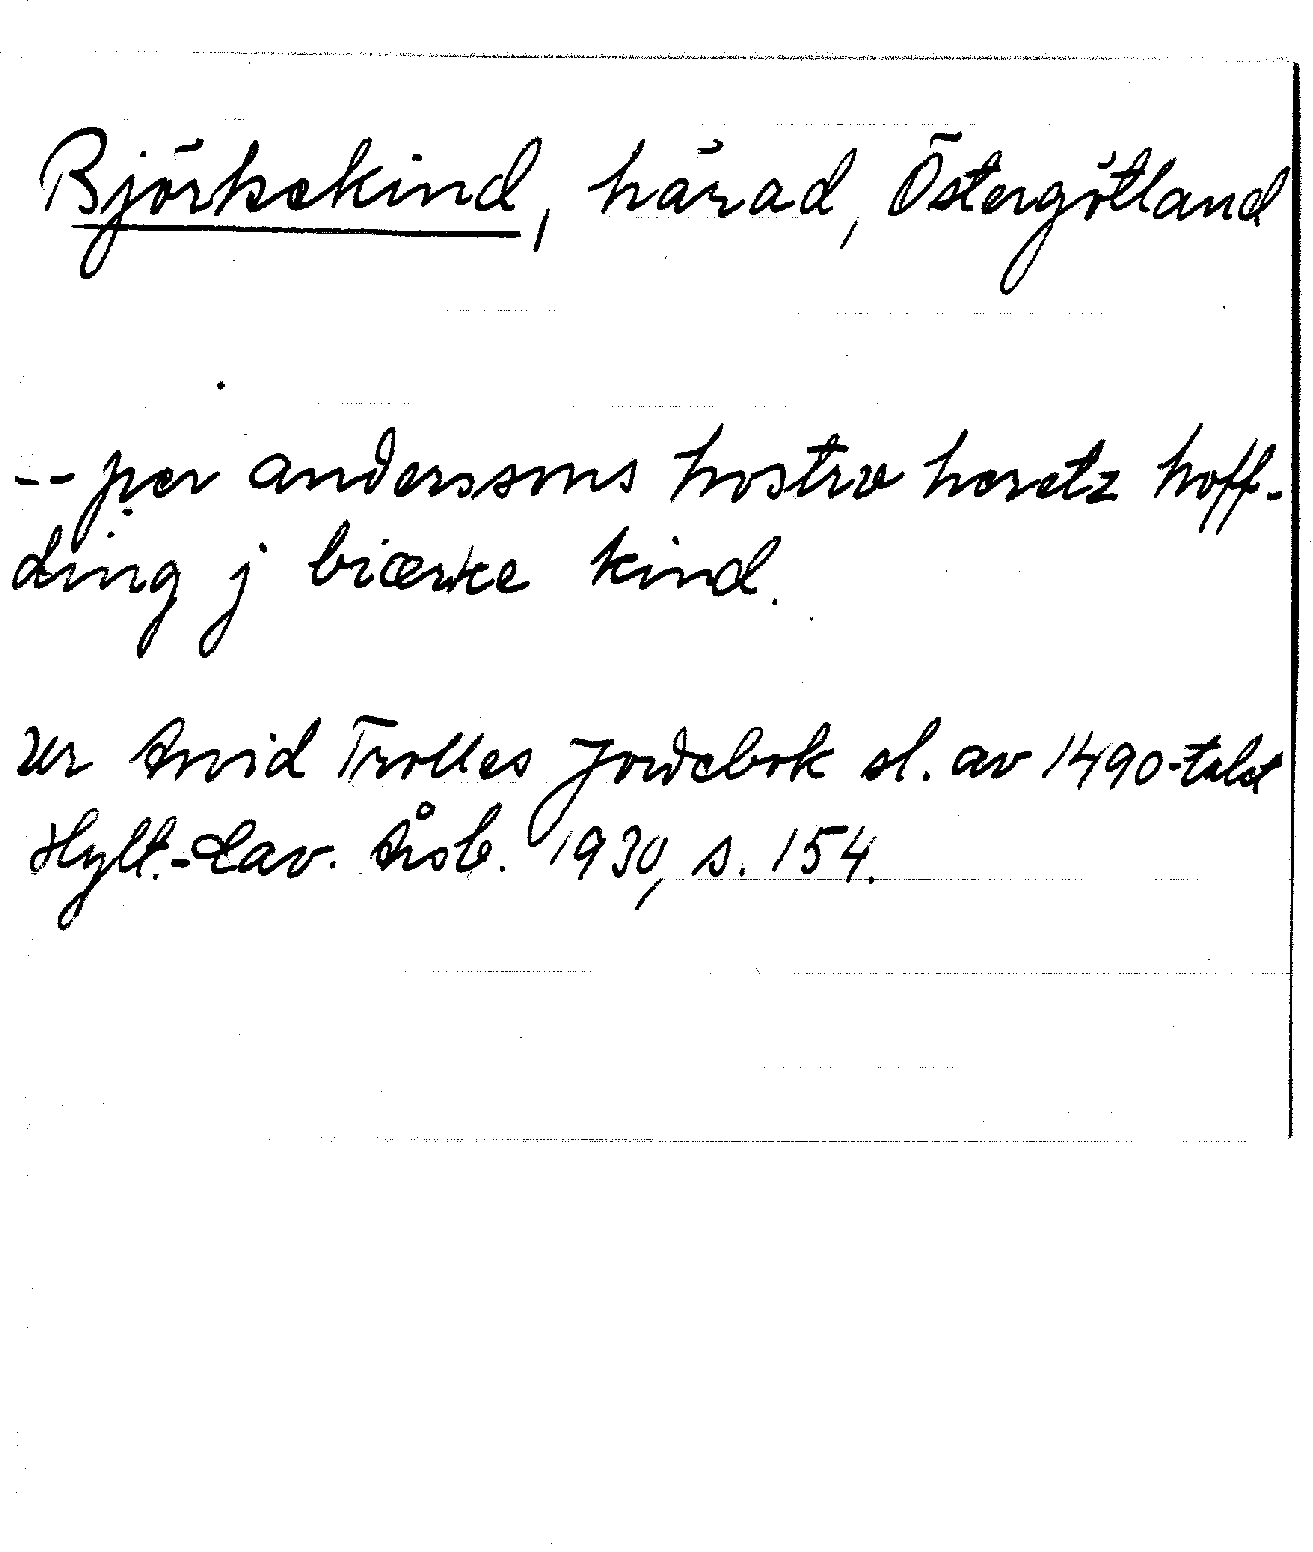 Björkekind, härad, Östergötland
-- per anderssons hostrv heretz hoff-
ding j biærke kind.
Ur Arvid Trolles Jordebok sl. av 1490-talet
Hylt.-Cav. Årsb. 1930, s. 154.